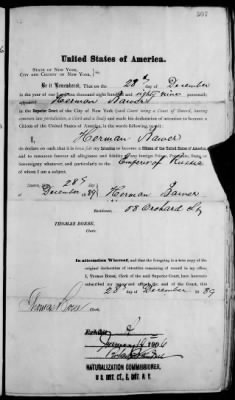 307
United States of America.
STATE OF NEW YORK,
CITY AND COUNTY OF NEW YORK, } ss.
Be it Remembered, That on the 28th day of December
in the year of our thousand eight hundred and eighty nine personally
appeared Herman
in the Superior Court of the City of New York (said Court being a Court of Record, having
common law jurisdiction, a Clerk and a Seal) and made his declaration of intention to become a
Citizen of the United States of America, in the words following, to wit:
I, Herman
do declare on oath that it is bona fide my Intention to become a Citizen of the United States of America,
and to renounce forever all allegiance and fidelity to any foreign Prince, Potentate, State or
Sovereignty whatever, and particularly to the Emperor of Russia
of whom I am a subject.
Sworn, 28th
December 89 Herman
Residence, 58 Orchard St
THOMAS BOESE,
Clerk.
In attestation Whereof, and that the foregoing is a true copy of the
original declaration of intention remaining of record in my office,
I, Thomas Boese, Clerk of the said Superior Court, have hereunto
subscribed my name and affixed the seal of the Court, this
28 day of December 89
Thomas Boese Clerk
NATURALIZATION COMMISSIONER,
U. S. DIST. CT., E. DIST. N. Y.